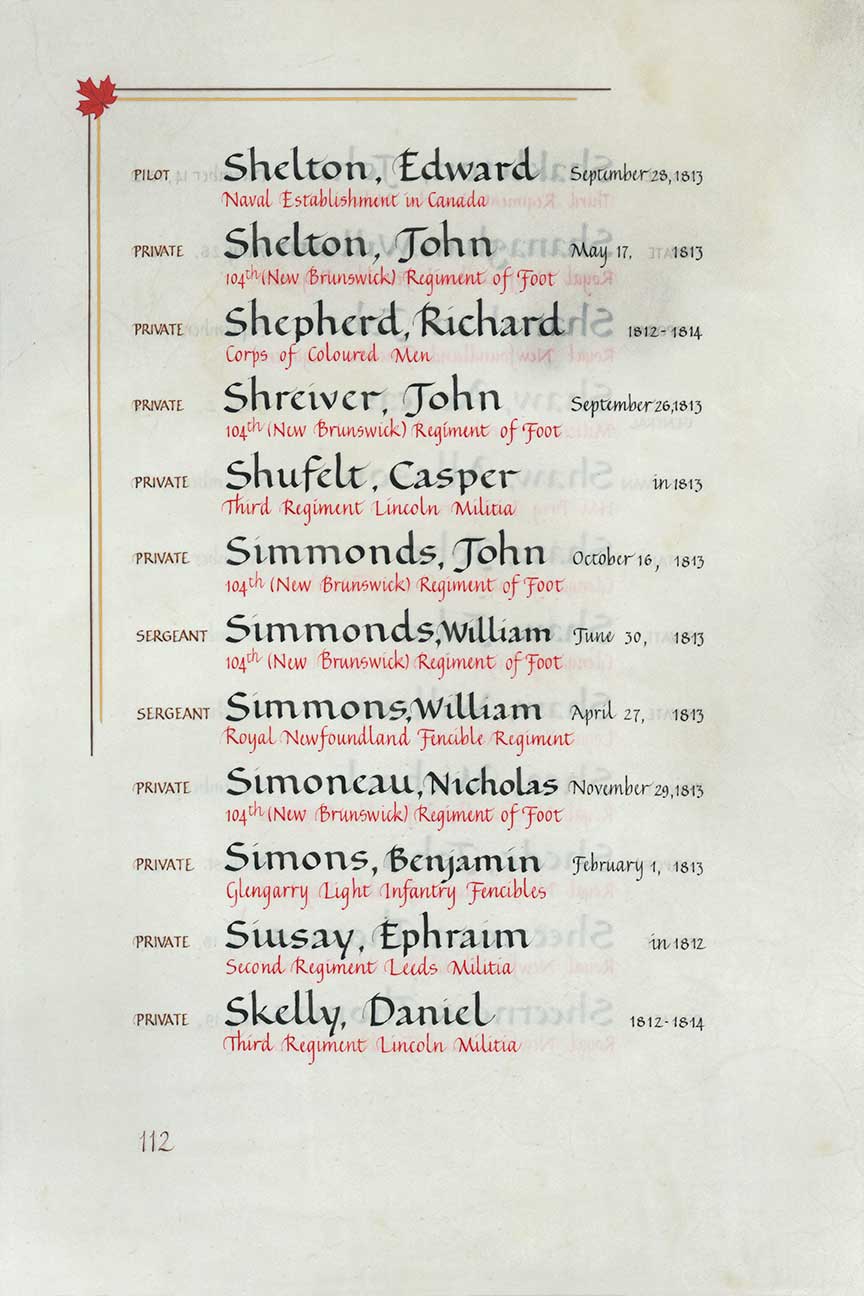 PILOT Shelton, Edward September 28, 1813
Naval Establishment in Canada
PRIVATE Shelton, John May 17, 1813
104th (New Brunswick) Regiment of Foot
PRIVATE Shepherd, Richard 1812-1814
Corps of Coloured Men
PRIVATE Shreiver, John September 26, 1813
104th (New Brunswick) Regiment of Foot
PRIVATE Shufelt, Casper in 1813
Third Regiment Lincoln Militia
PRIVATE Simmonds, John October 16, 1813
104th (New Brunswick) Regiment of Foot
SERGEANT Simmonds, William June 30, 1813
104th (New Brunswick) Regiment of Foot
SERGEANT Simmons, William April 27, 1813
Royal Newfoundland Fencible Regiment
PRIVATE Simoneau, Nicholas November 29, 1813
104th (New Brunswick) Regiment of Foot
PRIVATE Simons, Benjamin February 1, 1813
Glengarry Light Infantry Fencibles
PRIVATE Siusay, Ephraim in 1812
Second Regiment Leeds Militia
PRIVATE Skelly, Daniel 1812-1814
Third Regiment Lincoln Militia
112